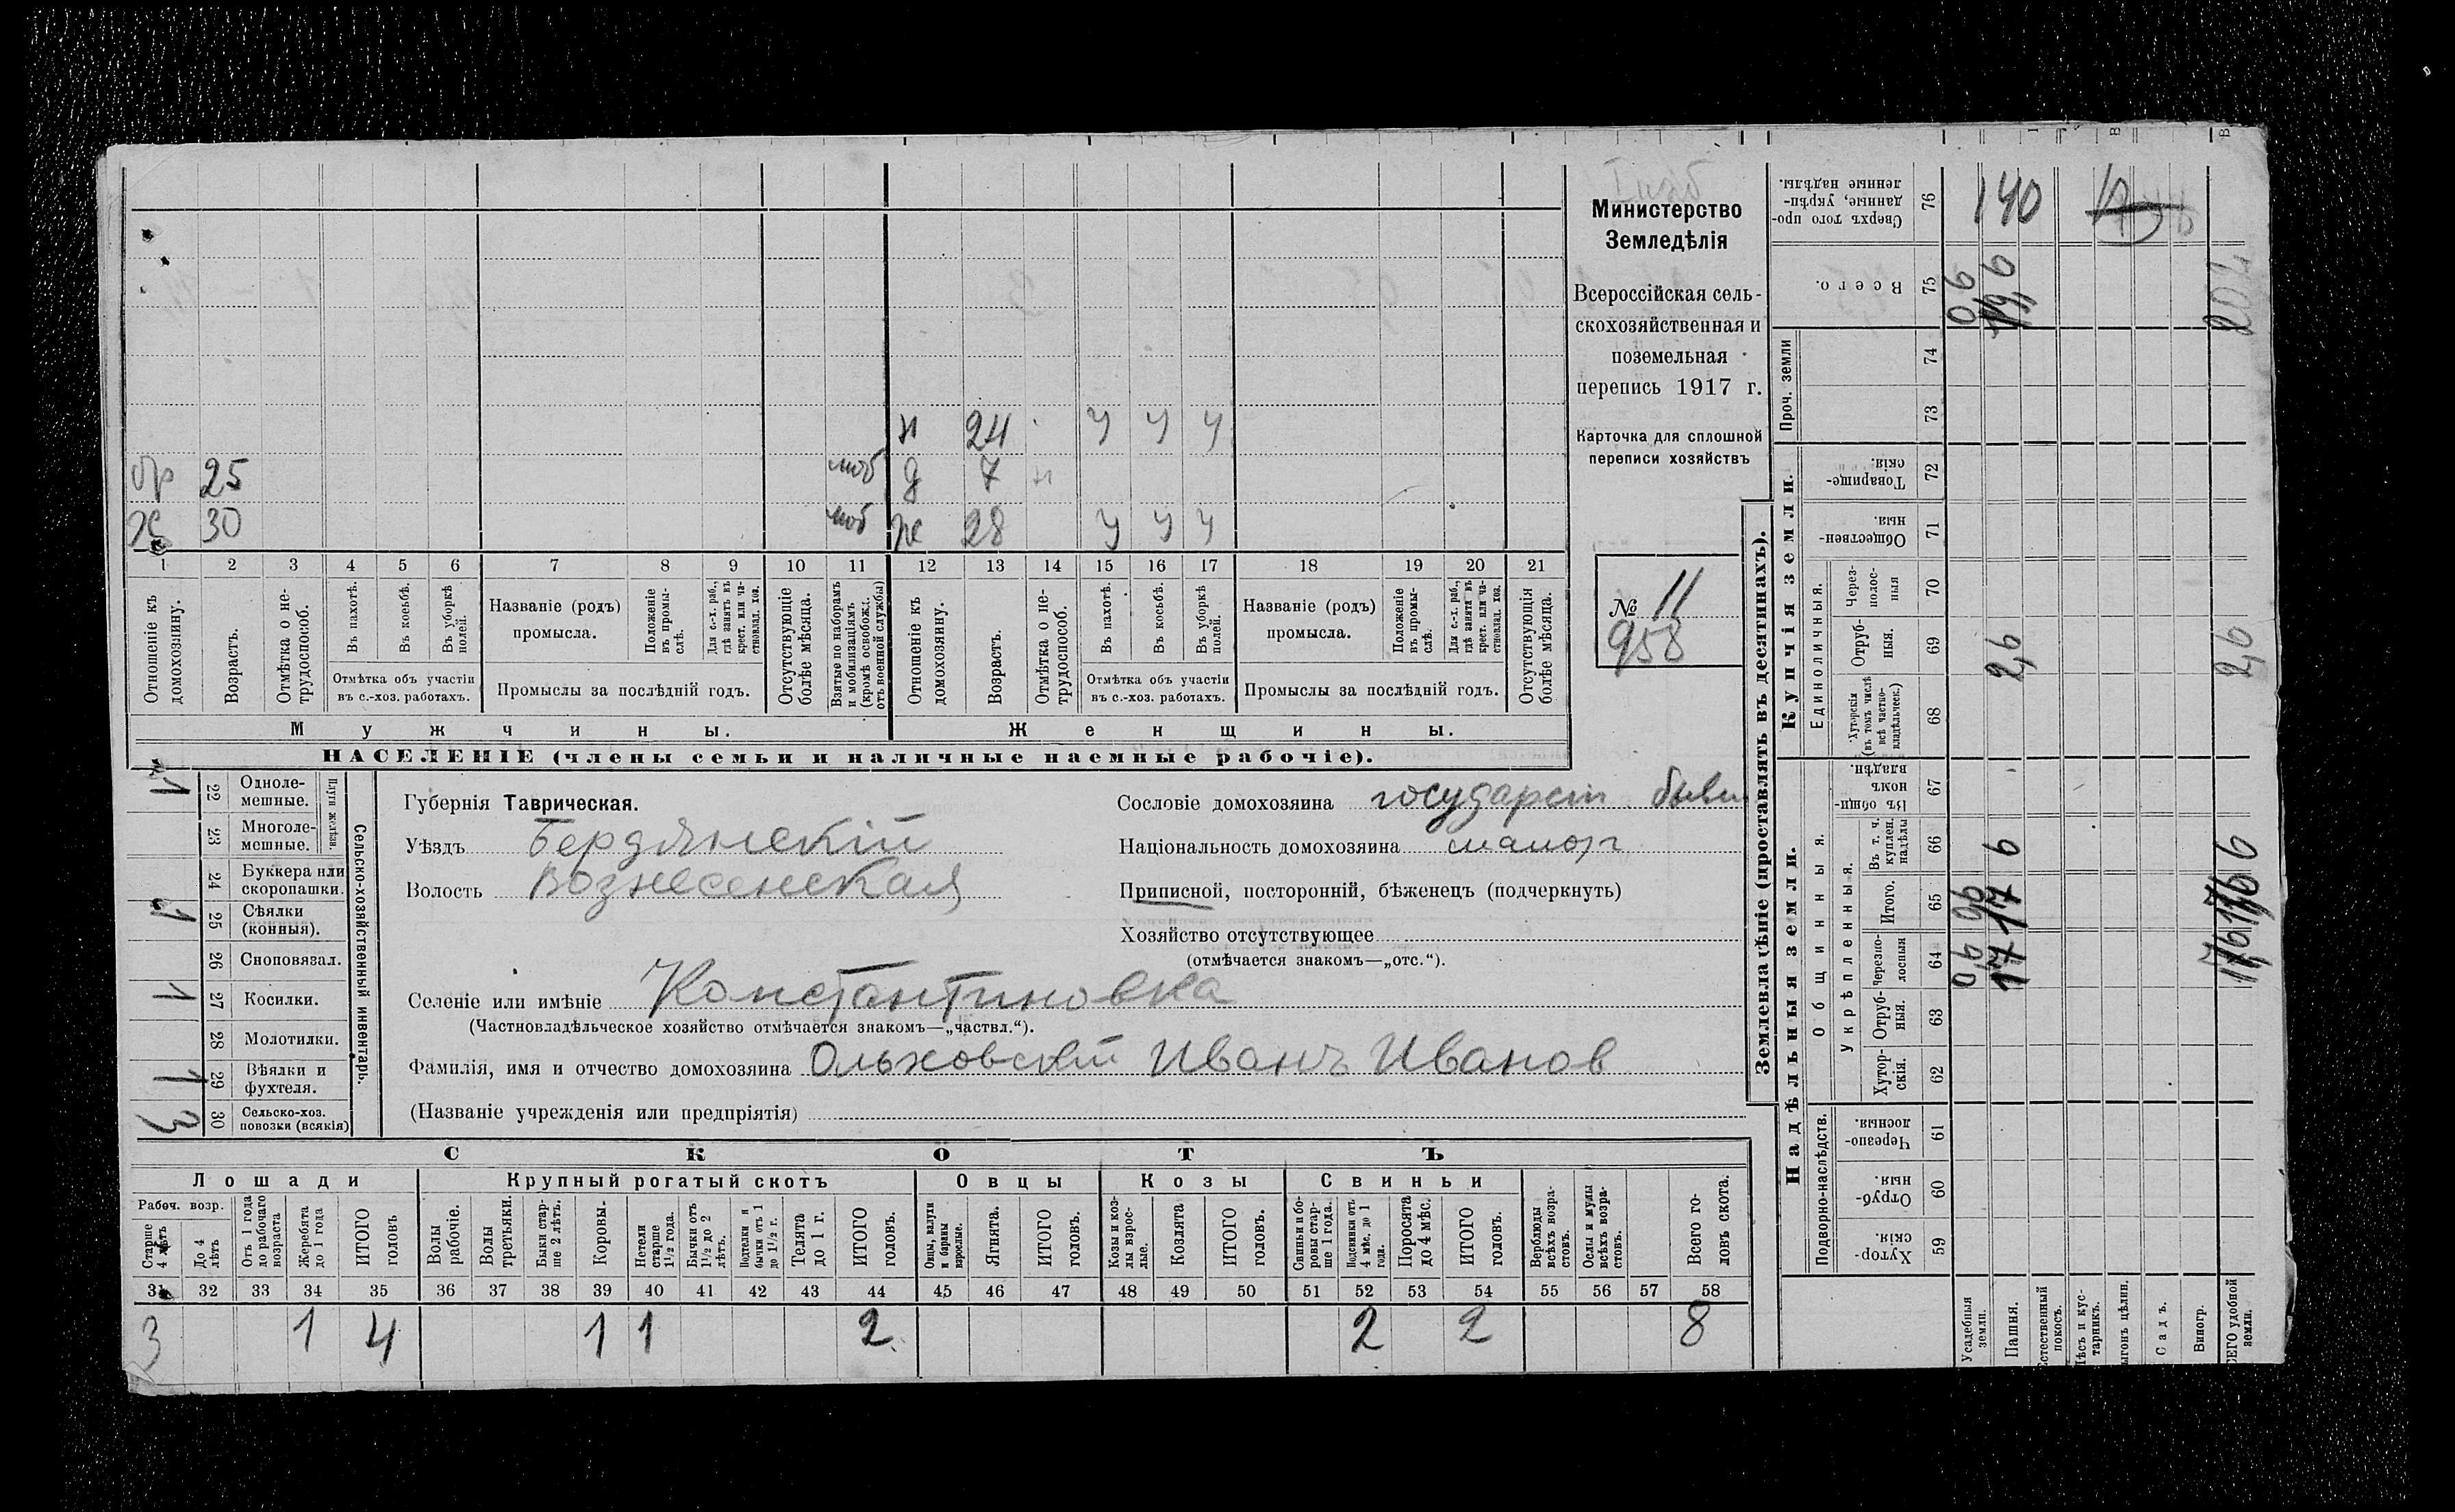 Министерство
Земледѣлія
Всероссійская сель-
скохозяйственная и
поземельная
перепись 1917 г.
Карточка для сплошной
переписи хозяйствъ
№ 11
958
н 24 у у у
бр 25 моб д 7 н
х 30 моб ж 28 у у у
1 2 3 4 5 6 7 8 9 10 11 12 13 14 15 16 17 18 19 20 21
Отношеніе къ домохозяину.
Возрастъ.
Отмѣтка о не-трудоспособ.
Въ пахотѣ.
Въ косьбѣ.
Въ уборкѣ полей.
Отмѣтка объ участіи въ с.-хоз. работахъ.
Названіе (родъ) промысла.
Положеніе въ промы-слѣ.
Для с.-х. раб., гдѣ занятъ въ крест. или ча-стновлад. хоз.
Промыслы за послѣдній годъ.
Отсутствующіе болѣе мѣсяца.
Взятые по наборамъ и мобилизаціямъ (кромѣ освобожд. отъ военной службы)
Отношеніе къ домохозяину.
Возрастъ.
Отмѣтка о не-трудоспособ.
Въ пахотѣ.
Въ косьбѣ.
Въ уборкѣ полей.
Отмѣтка объ участіи въ с.-хоз. работахъ.
Названіе (родъ) промысла.
Положеніе въ промы-слѣ.
Для с.-х. раб., гдѣ заняти въ крест. или ча-стновлад. хоз.
Промыслы за послѣдній годъ.
Отсутствующія болѣе мѣсяца.
Мужчины. Женщины.
НАСЕЛЕНІЕ (члены семьи и наличные наемные рабочіе).
Сельско-хозяйственный инвентарь.
Плуги желѣзн.
1 22 Одноле-мешные.
23 Многоле-мешные.
24 Буккера или скоропашки.
1 25 Сѣялки (конныя).
26 Сноповязал.
1 27 Косилки.
28 Молотилки.
1 29 Вѣялки и фухтеля.
3 30 Сельско-хоз. повозки (всякія)
Губернія Таврическая.
Уѣздъ Бердянскій
Волость Вознесенская
Сословіе домохозяина государст. бывш
Національность домохозяина малор
Приписной, посторонній, бѣженецъ (подчеркнуть)
Хозяйство отсутствующее
(отмѣчается знакомъ—„отс.“).
Селеніе или имѣніе Константиновка
(Частновладѣльческое хозяйство отмѣчается знакомъ—„частвл.“).
Фамилія, имя и отчество домохозяина Ольховскій Иванъ Иванов
(Названіе учрежденія или предпріятія)
СКОТЪ
Лошади Крупный рогатый скотъ Овцы Козы Свиньи
Рабоч. возр.
Старше 4 лѣтъ
До 4 лѣтъ
Отъ 1 года до рабочаго возраста
Жеребята до 1 года
ИТОГО головъ
Волы рабочіе.
Волы третьяки.
Быки стар-ше 2 лѣтъ.
Коровы.
Нетели старше 1½ года.
Бычки отъ 1½ до 2 лѣтъ.
Подтелки и бычки отъ 1 до 1½ г.
Телята до 1 г.
ИТОГО головъ.
Овцы, валухи и бараны взрослые.
Ягнята.
ИТОГО головъ.
Козы и коз-лы взрос-лые.
Козлята
ИТОГО головъ.
Свиньи и бо-ровы стар-ше 1 года.
Подсвинки отъ 4 мѣс. до 1 года.
Поросята до 4 мѣс.
ИТОГО головъ.
Верблюды всѣхъ возра-стовъ.
Ослы и мулы всѣхъ возра-стовъ.
Всего го-ловъ скота.
31 32 33 34 35 36 37 38 39 40 41 42 43 44 45 46 47 48 49 50 51 52 53 54 55 56 57 58
3 1 4 1 1 2 2 2 8
Землевладѣніе (проставлять въ десятинахъ).
Надѣльныя земли.
Купчія земли.
Проч. земли
Подворно-наслѣдств.
Общинныя.
Укрѣпленныя.
Единоличныя.
Сверхъ того про-данные, укрѣп-ленные надѣлы. 76 140
Всего. 75 90
74
73
Товарище-скія. 72
Обществен-ныя. 71
Через-полос-ныя 70
Отруб-ныя. 69 2,6 2,6
Хуторскія (въ томъ числѣ всѣ частно-владѣльческ.) 68
Въ общи-номъ владѣн. 67
Въ т. ч. куплен. надѣлы 66 6 6
Итого. 65 90 17
Черезпо-лосныя 64 90 17
Отруб-ныя. 63
Хутор-скія. 62
Черезпо-лосныя. 61
Отруб-ныя. 60
Хутор-скія. 59
Усадебныя земли.
Пашня.
стественный покосъ.
ѣсъ и кус-тарникъ.
ыгонъ цѣлин.
Садъ.
Виногр.
СЕГО удобной земли.